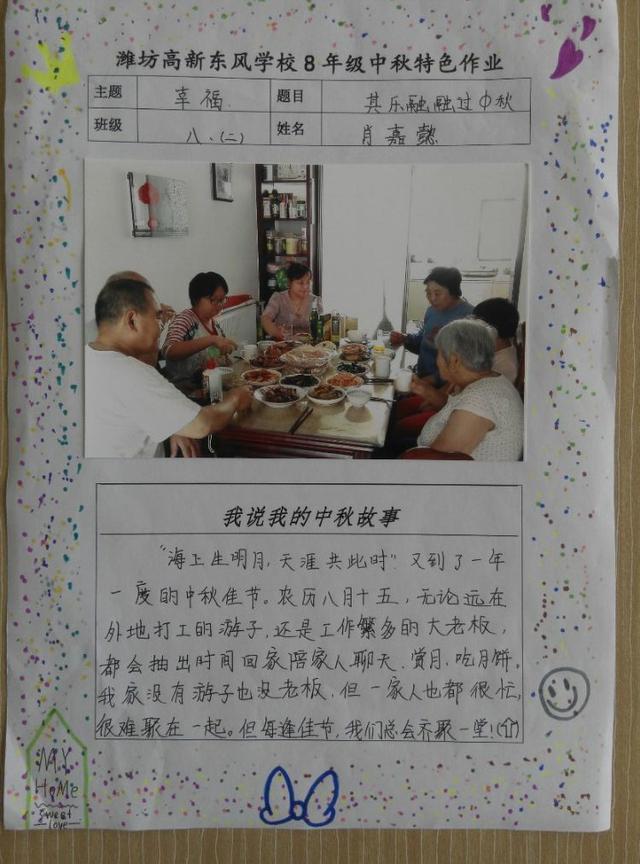 潍坊高新东风学校8年级中秋特色作业
主题 幸福 题目 其乐融融过中秋
班级 八.(二) 姓名 肖嘉懿
我说我的中秋故事
“海上生明月,天涯共此时”又到了一年
一度的中秋佳节。农历八月十五,无论远在
外地打工的游子,还是工作繁多的大老板,
都会抽出时间回家陪家人聊天、赏月、吃月饼。
我家没有游子也没老板,但一家人也都很忙,
很难聚在一起。但每逢佳节,我们总会齐聚一堂!
MY
HOME
sweet
love